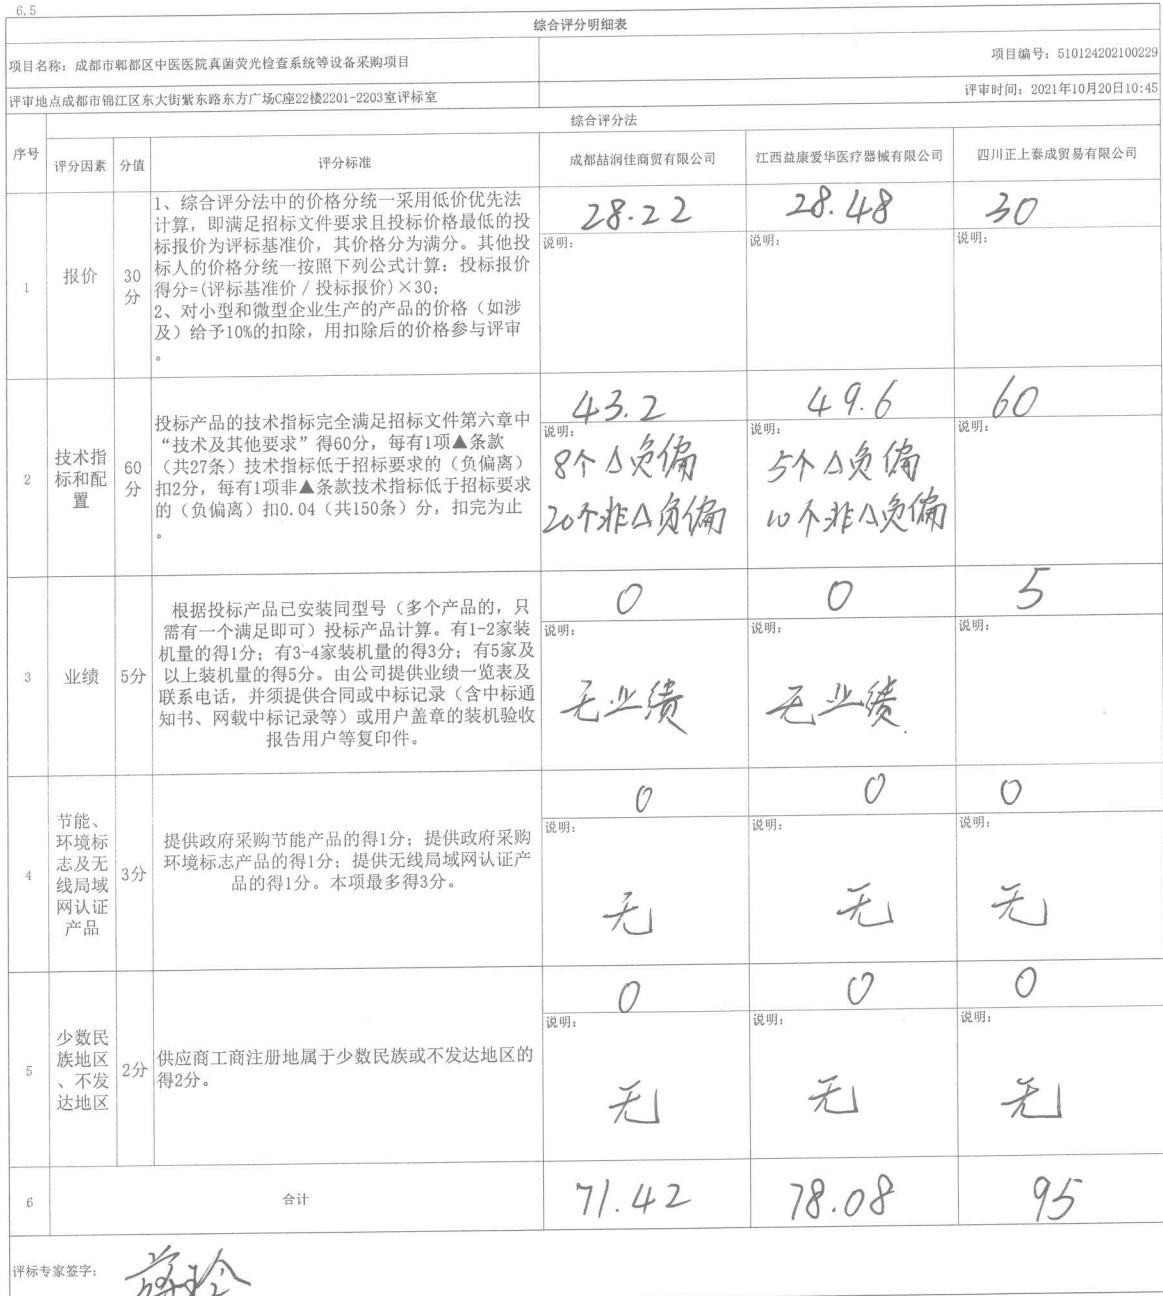 6.5
综合评分明细表
项目名称：成都市郫都区中医医院真菌荧光检查系统等设备采购项目
项目编号：510124202100229
评审地点成都市锦江区东大街紫东路东方广场C座22楼2201-2203室评标室
评审时间：2021年10月20日10:45
序号
综合评分法
评分因素 分值 评分标准 成都喆润佳商贸有限公司 江西益康爱华医疗器械有限公司 四川正上泰成贸易有限公司
1
报价
30
分
1、综合评分法中的价格分统一采用低价优先法
计算，即满足招标文件要求且投标价格最低的投
标报价为评标基准价，其价格分为满分。其他投
标人的价格分统一按照下列公式计算：投标报价
得分=(评标基准价／投标报价)×30；
2、对小型和微型企业生产的产品的价格（如涉
及）给予10%的扣除，用扣除后的价格参与评审
。
28.22 28.48 30
说明： 说明： 说明：
2
技术指
标和配
置
60
分
投标产品的技术指标完全满足招标文件第六章中
“技术及其他要求”得60分，每有1项▲条款
（共27条）技术指标低于招标要求的（负偏离）
扣2分，每有1项非▲条款技术指标低于招标要求
的（负偏离）扣0.04（共150条）分，扣完为止
。
43.2 49.6 60
说明： 说明： 说明：
8个△负偏 5个△负偏
20个非△负偏 10个非△负偏
3
业绩
5分
根据投标产品已安装同型号（多个产品的，只
需有一个满足即可）投标产品计算。有1-2家装
机量的得1分；有3-4家装机量的得3分；有5家及
以上装机量的得5分。由公司提供业绩一览表及
联系电话，并须提供合同或中标记录（含中标通
知书、网载中标记录等）或用户盖章的装机验收
报告用户等复印件。
0 0 5
说明： 说明： 说明：
无业绩 无业绩
4
节能、
环境标
志及无
线局域
网认证
产品
3分
提供政府采购节能产品的得1分；提供政府采购
环境标志产品的得1分；提供无线局域网认证产
品的得1分。本项最多得3分。
0 0 0
说明： 说明： 说明：
无 无 无
5
少数民
族地区
、不发
达地区
2分
供应商工商注册地属于少数民族或不发达地区的
得2分。
0 0 0
说明： 说明： 说明：
无 无 无
6 合计 71.42 78.08 95
评标专家签字：